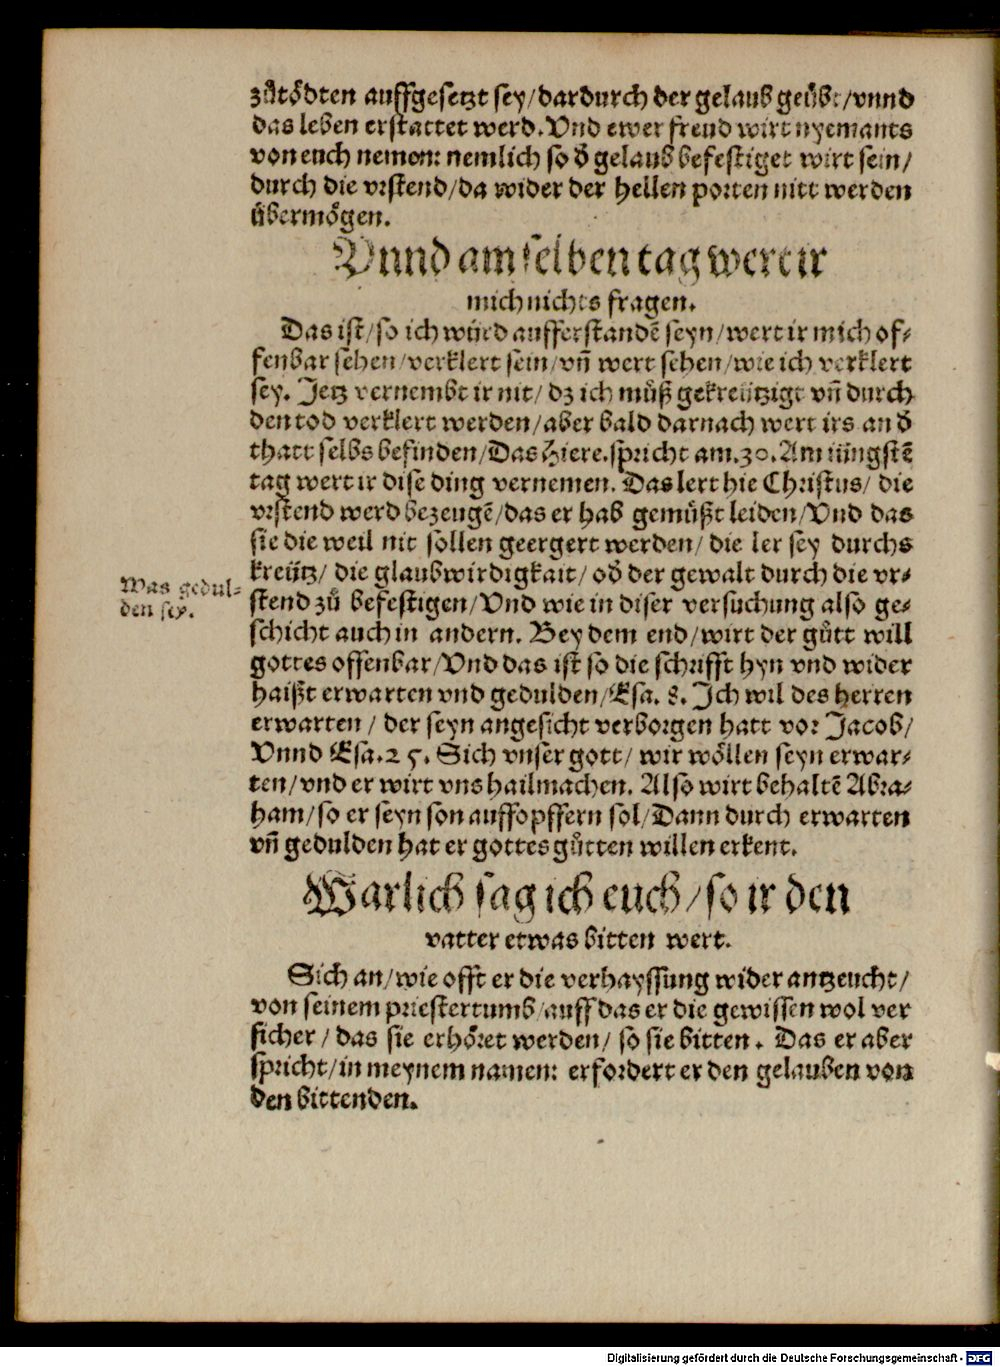 zůtödten auffgesetzt sey/dardurch der gelaub geůbt/vnnd
das leben erstattet werd. Vnd ewer freud wirt nyemants
von euch nemen: nemlich so d̕ gelaub befestiget wirt sein/
durch die vrstend/da wider der hellen porten nitt werden
übermögen.
Vnnd am selben tag wert ir
mich nichts fragen.
Das ist/so ich würd aufferstandē seyn/wert ir mich of-
fenbar sehen/verklert sein/vn̄ wert sehen/wie ich verklert
sey. Jetz vernembt ir nit/ dz ich můß gekreützigt vn̄ durch
den tod verklert werden/aber bald darnach wert irs an d̕
thatt selbs befinden/Das Hiere. spricht am. 30. Am iüngstē
tag wert ir dise ding vernemen. Das lert hie Christus/ die
vrstend werd bezeugē/das er hab gemüßt leiden/Vnd das
sie die weil nit sollen geergert werden/ die ler sey durchs
kreütz/ die glaubwirdigkait/ od̕ der gewalt durch die vr-
stend zů befestigen/Vnd wie in diser versuchung also ge-
schicht auch in andern. Bey dem end/wirt der gůtt will
gottes offenbar/Vnd das ist so die schrifft hyn vnd wider
haißt erwarten vnd gedulden/Esa. 8. Ich wil des herren
erwarten / der seyn angesicht verborgen hatt vor Jacob/
Vnnd Esa. 25. Sich vnser gott/ wir wöllen seyn erwar-
ten/vnd er wirt vns hailmachen. Also wirt behaltē Abra-
ham/so er seyn son auffopffern sol/Dann durch erwarten
vn̄ gedulden hat er gottes gůtten willen erkent.
Was gedul-
den sey.
Warlich sag ich euch/so ir den
vatter etwas bitten wert.
Sich an/wie offt er die verhayssung wider antzeucht/
von seinem priestertumb/auff das er die gewissen wol ver
sicher/ das sie erhöret werden/ so sie bitten. Das er aber
spricht/in meynem namen: erfordert er den gelauben von
den bittenden.
Digitalisierung gefördert durch die Deutsche Forschungsgemeinschaft - DFG